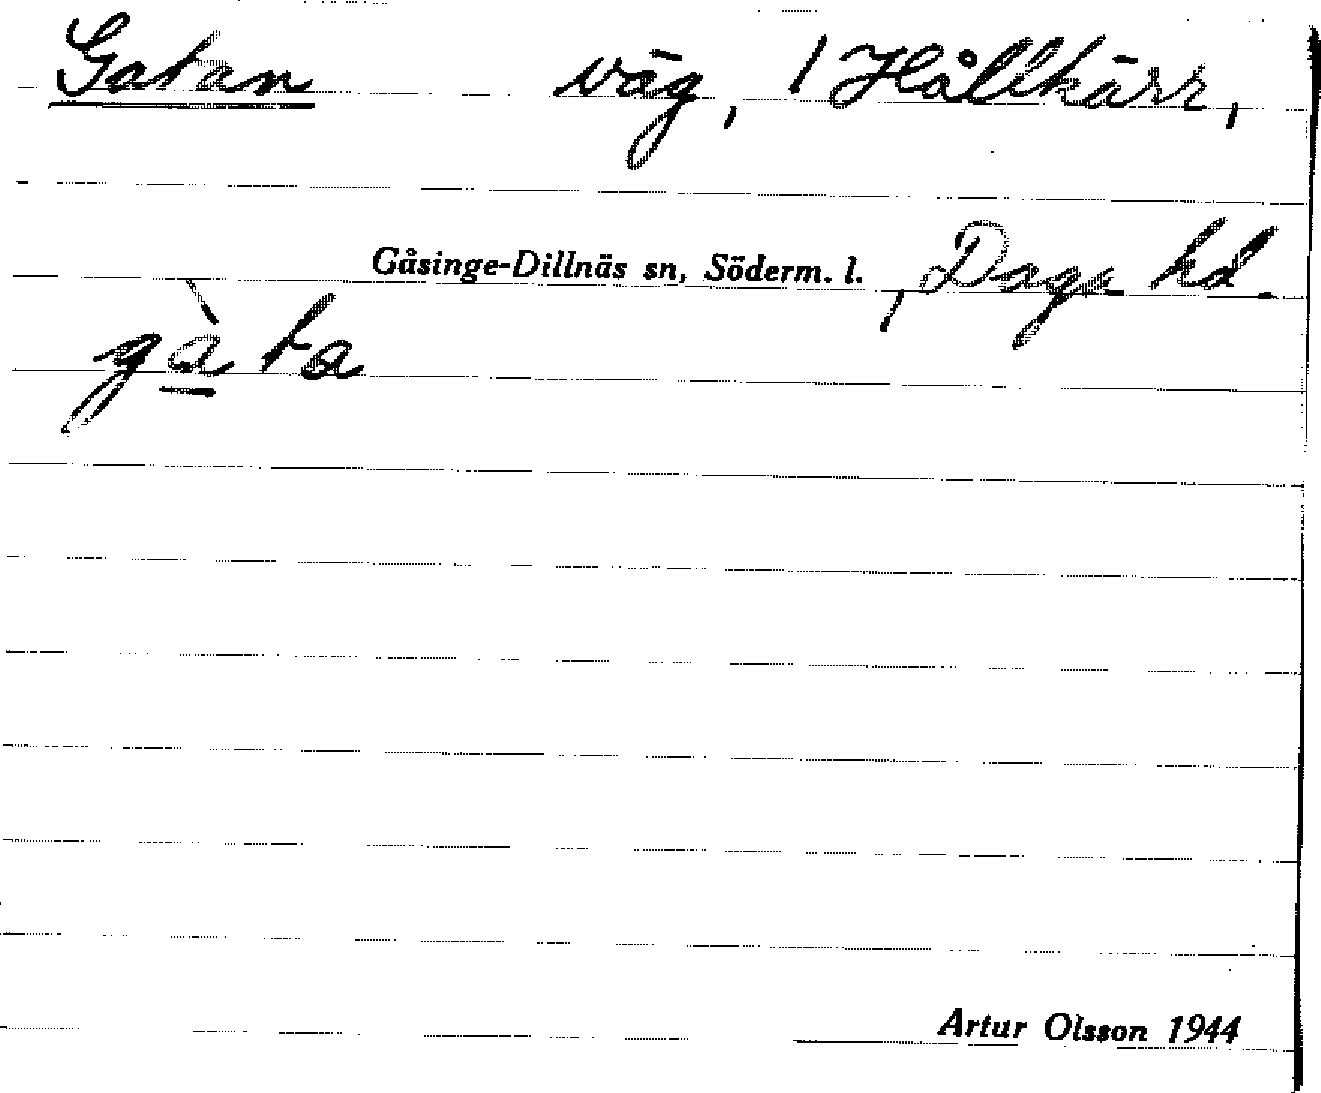 Gatan väg, / Hållkärr,
Gåsinge-Dillnäs sn, Söderm. l., Daga hd.
gà̱ta
Artur Olsson 1944